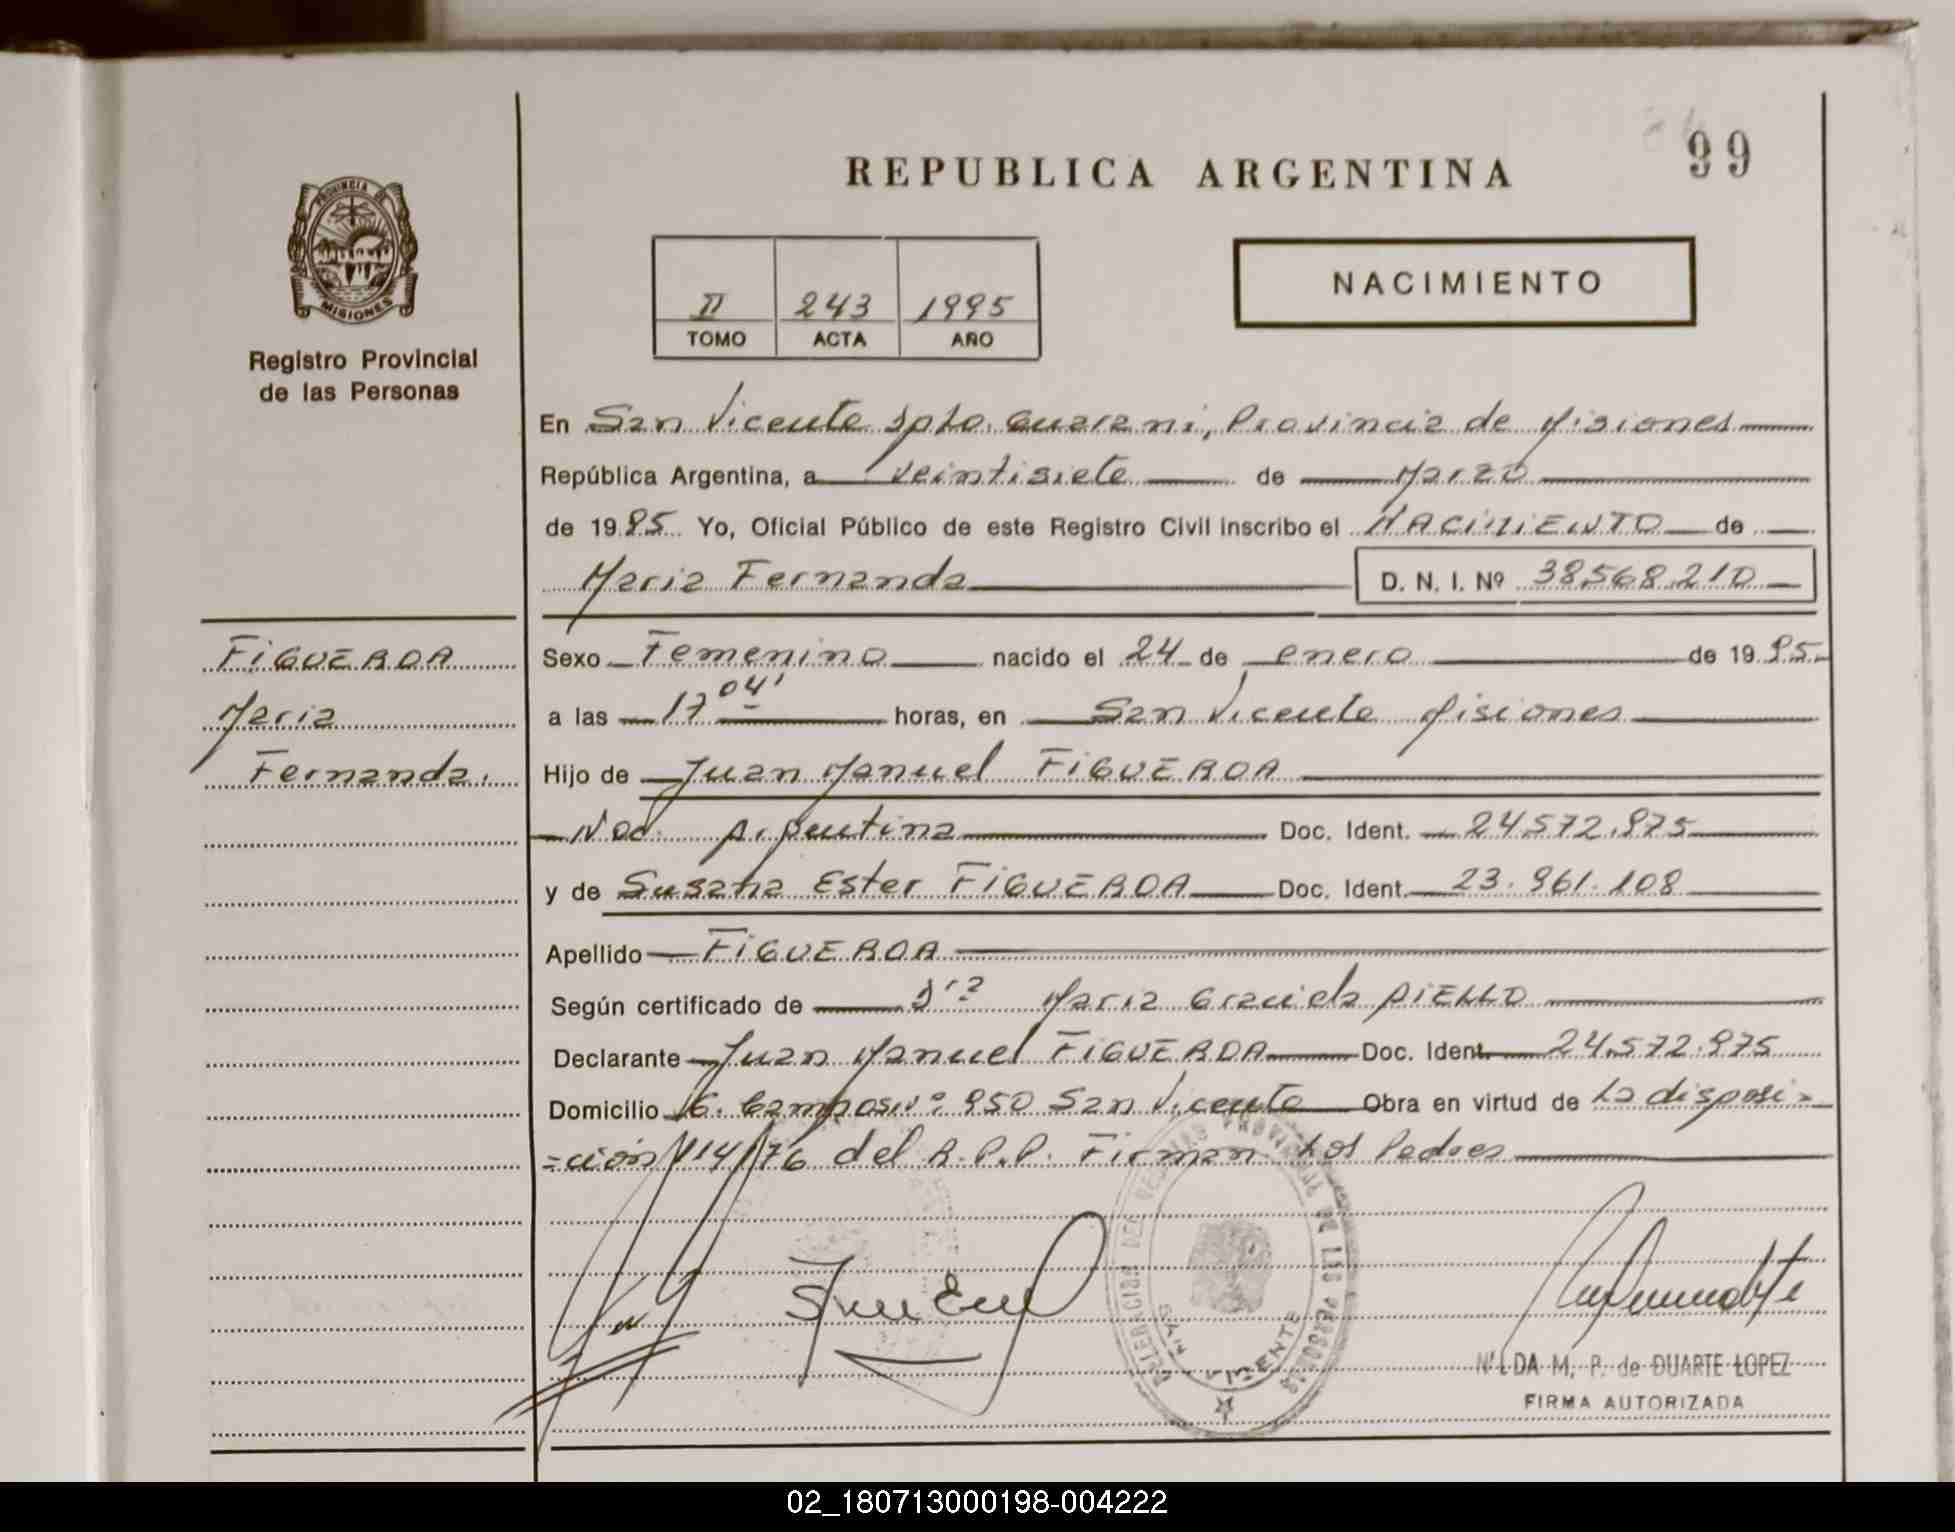 REPUBLICA ARGENTINA
99
PROVINCIA DE
MISIONES
Registro Provincial
de las Personas
II 243 1995
TOMO ACTA AÑO
NACIMIENTO
En San Vicente Dpto. Guarani, Provincia de Misiones
República Argentina, a veintisiete de Marzo
de 1995 Yo, Oficial Público de este Registro Civil inscribo el NACIMIENTO de
Maria Fernanda D. N. I. Nº 38.568.210
FIGUEROA
Maria
Fernanda.
Sexo Femenino nacido el 24 de enero de 1995
a las 17 04' horas, en San Vicente Misiones
Hijo de Juan Manuel FIGUEROA
Nac. Argentina Doc. Ident. 24.572.975
y de Susana Ester FIGUEROA Doc. Ident. 23.961.108
Apellido FIGUEROA
Según certificado de Dra Maria Graciela AIELLO
Declarante Juan Manuel FIGUEROA Doc. Ident. 24.572.975
Domicilio Campos Nº 950 San Vicente Obra en virtud de La disposi-
=ción 114/76 del R.P.P. Firman Los Padres
DELEGACION DEL REGISTRO PROVINCIAL DE LAS PERSONAS
SAN VICENTE
NILDA M. P. de DUARTE LOPEZ
FIRMA AUTORIZADA
02_180713000198-004222